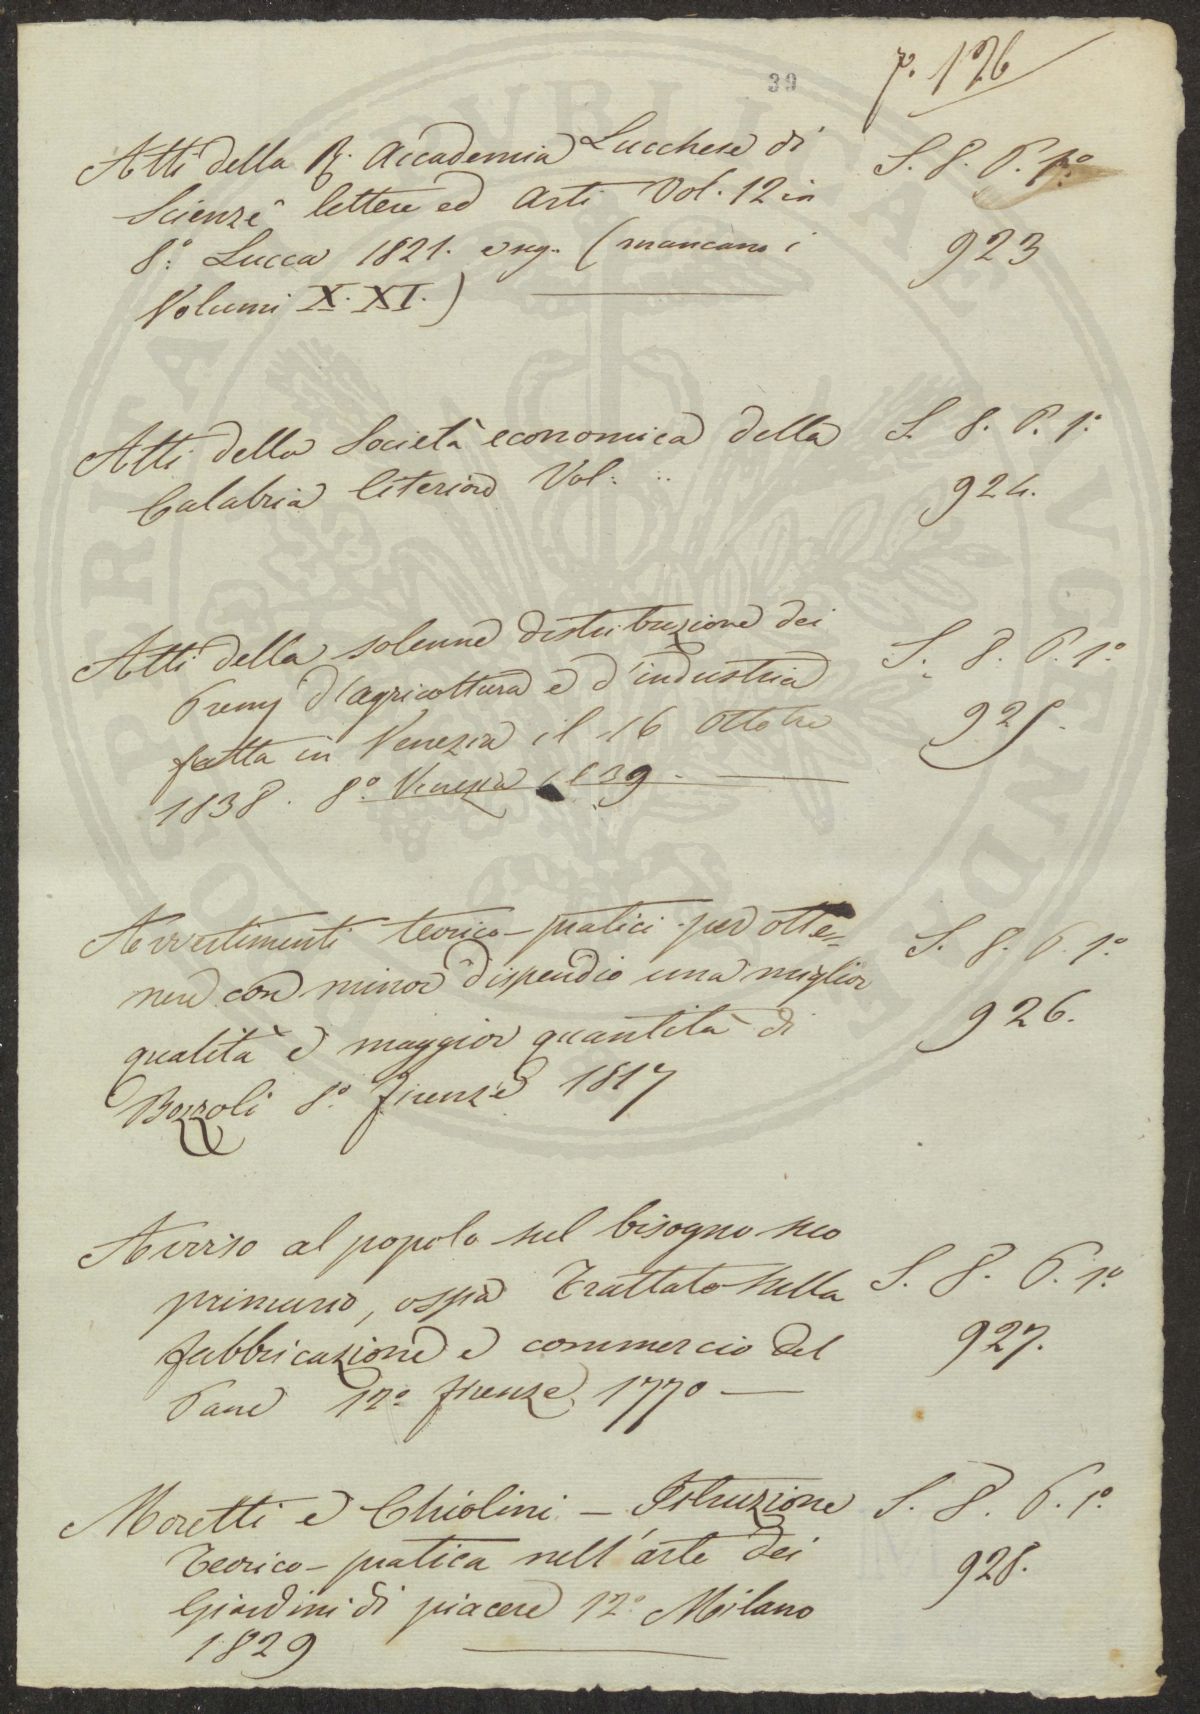 39
p. 126
Atti della R. Accademia Lucchese di
Scienze lettere ed Arti Vol. 12 in
8.° Lucca 1821. e seg. (mancano i
Volumi X. XI.)
S. 8. P. 1.°
923
Atti della Società economica della
Calabria Citeriore Vol. ..
S. 8. P. 1.°
924.
Atti della solenne distribuzione dei
Premj d'agricoltura e d'industria
fatta in Venezia il 16 Ottobre
1838. 8.° Venezia 1839.
S. 8. P. 1.°
925.
Avvertimenti teorico-pratici per otte=
nere con minor dispendio una miglior
qualità e maggior quantità di
Bozzoli 8.° Firenze 1817
S. 8. P. 1.°
926.
Avviso al popolo sul bisogno suo
primario, ossia Trattato sulla
fabbricazione e commercio del
Pane 12.° Firenze 1770
S. 8. P. 1.°
927.
Moretti e Chiolini - Istruzione
Teorico-pratica nell'arte dei
Giardini di piacere 12.° Milano
1829
S. 8. P. 1.°
928.